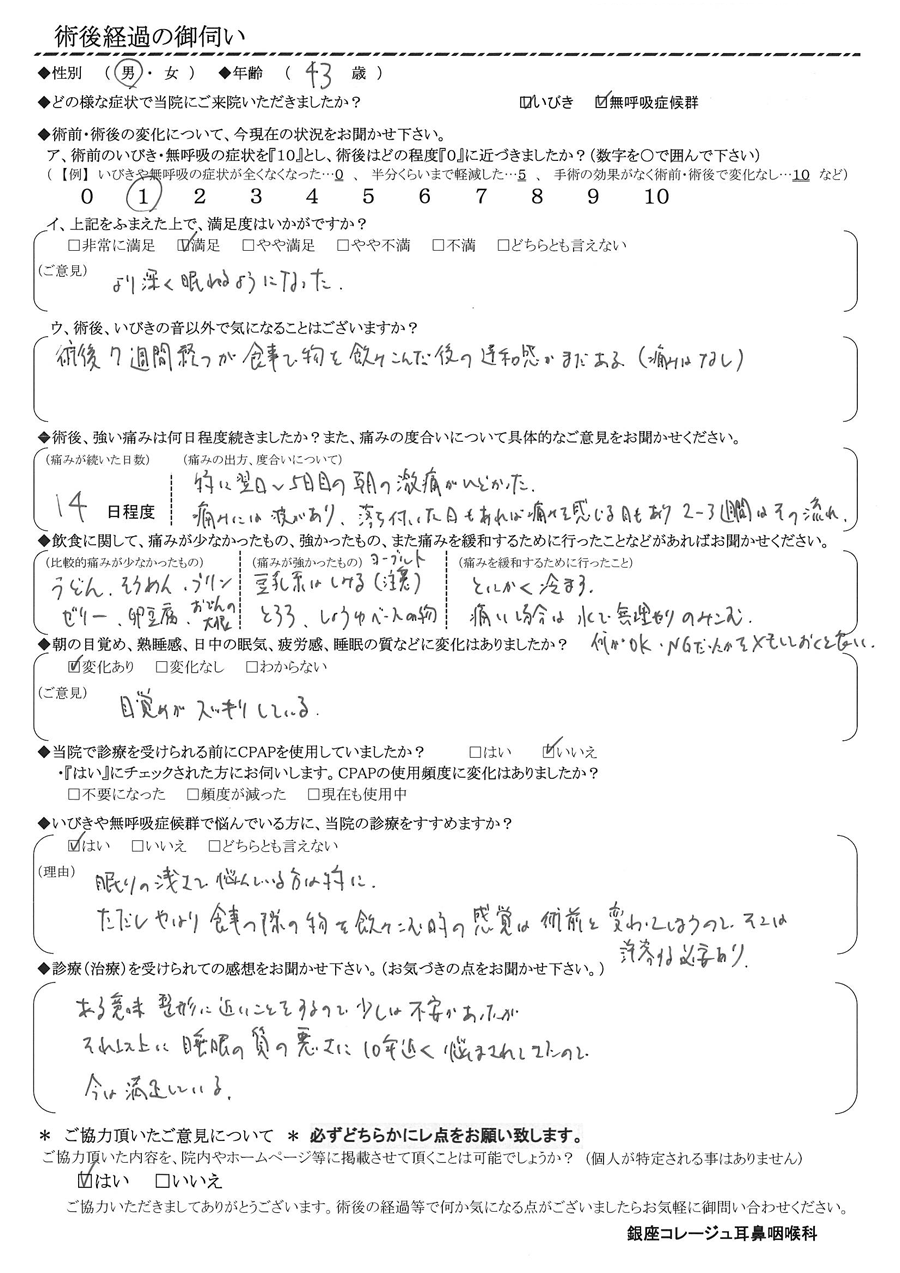 術後経過の御伺い
◆性別 (男・女) ◆年齢 (43歳)
◆どの様な症状で当院にご来院いただきましたか? ☑いびき ☑無呼吸症候群
◆術前・術後の変化について、今現在の状況をお聞かせ下さい。
ア、術前のいびき・無呼吸の症状を『10』とし、術後はどの程度『0』に近づきましたか?(数字を〇で囲んで下さい)
(【例】いびきや無呼吸の症状が全くなくなった…0、半分くらいまで軽減した…5、手術の効果がなく術前・術後で変化なし…10 など)
0 1 2 3 4 5 6 7 8 9 10
イ、上記をふまえた上で、満足度はいかがですか?
□非常に満足 ☑満足 □やや満足 □やや不満 □不満 □どちらとも言えない
(ご意見)
より深く眠れるようになった.
ウ、術後、いびきの音以外で気になることはございますか?
術後7週間経つが食事で物を飲みこんだ後の違和感がまだある(痛みはなし)
◆術後、強い痛みは何日程度続きましたか?また、痛みの度合いについて具体的なご意見をお聞かせください。
(痛みが続いた日数) (痛みの出方、度合いについて)
14日程度
特に翌日~5日目の朝の激痛がひどかった.
痛みには波があり、落ち付いた日もあれば痛みを感じる日もあり2-3週間はその流れ.
◆飲食に関して、痛みが少なかったもの、強かったもの、また痛みを緩和するために行ったことなどがあればお聞かせください。
(比較的痛みが少なかったもの) (痛みが強かったもの) ヨーグルト (痛みを緩和するために行ったこと)
うどん、そうめん、プリン 豆乳系はしみる(注意) とにかく冷ます.
ゼリー、卵豆腐、おでんの大根 とろろ、しょうゆベースの物 痛い場合は水で無理やりのみこむ.
何がOK・NGだったかをメモしておくとよい.
◆朝の目覚め、熟睡感、日中の眠気、疲労感、睡眠の質などに変化はありましたか?
☑変化あり □変化なし □わからない
(ご意見)
目覚めがスッキリしている.
◆当院で診療を受けられる前にCPAPを使用していましたか? □はい ☑いいえ
・『はい』にチェックされた方にお伺いします。CPAPの使用頻度に変化はありましたか?
□不要になった □頻度が減った □現在も使用中
◆いびきや無呼吸症候群で悩んでいる方に、当院の診療をすすめますか?
☑はい □いいえ □どちらとも言えない
(理由)
眠りの浅さで悩んでいる方は特に.
ただしやはり食事の際の物を飲みこむ時の感覚は術前と変わってしまうので、そこは
許容する必要あり.
◆診療(治療)を受けられての感想をお聞かせ下さい。(お気づきの点をお聞かせ下さい。)
ある意味整形に近いことをするので少しは不安があったが
それ以上に睡眠の質の悪さに10年近く悩まされてきたので
今は満足している.
* ご協力頂いたご意見について * 必ずどちらかにレ点をお願い致します。
ご協力頂いた内容を、院内やホームページ等に掲載させて頂くことは可能でしょうか? (個人が特定される事はありません)
☑はい □いいえ
ご協力いただきましてありがとうございます。術後の経過等で何か気になる点がございましたらお気軽に御問い合わせください。
銀座コレージュ耳鼻咽喉科